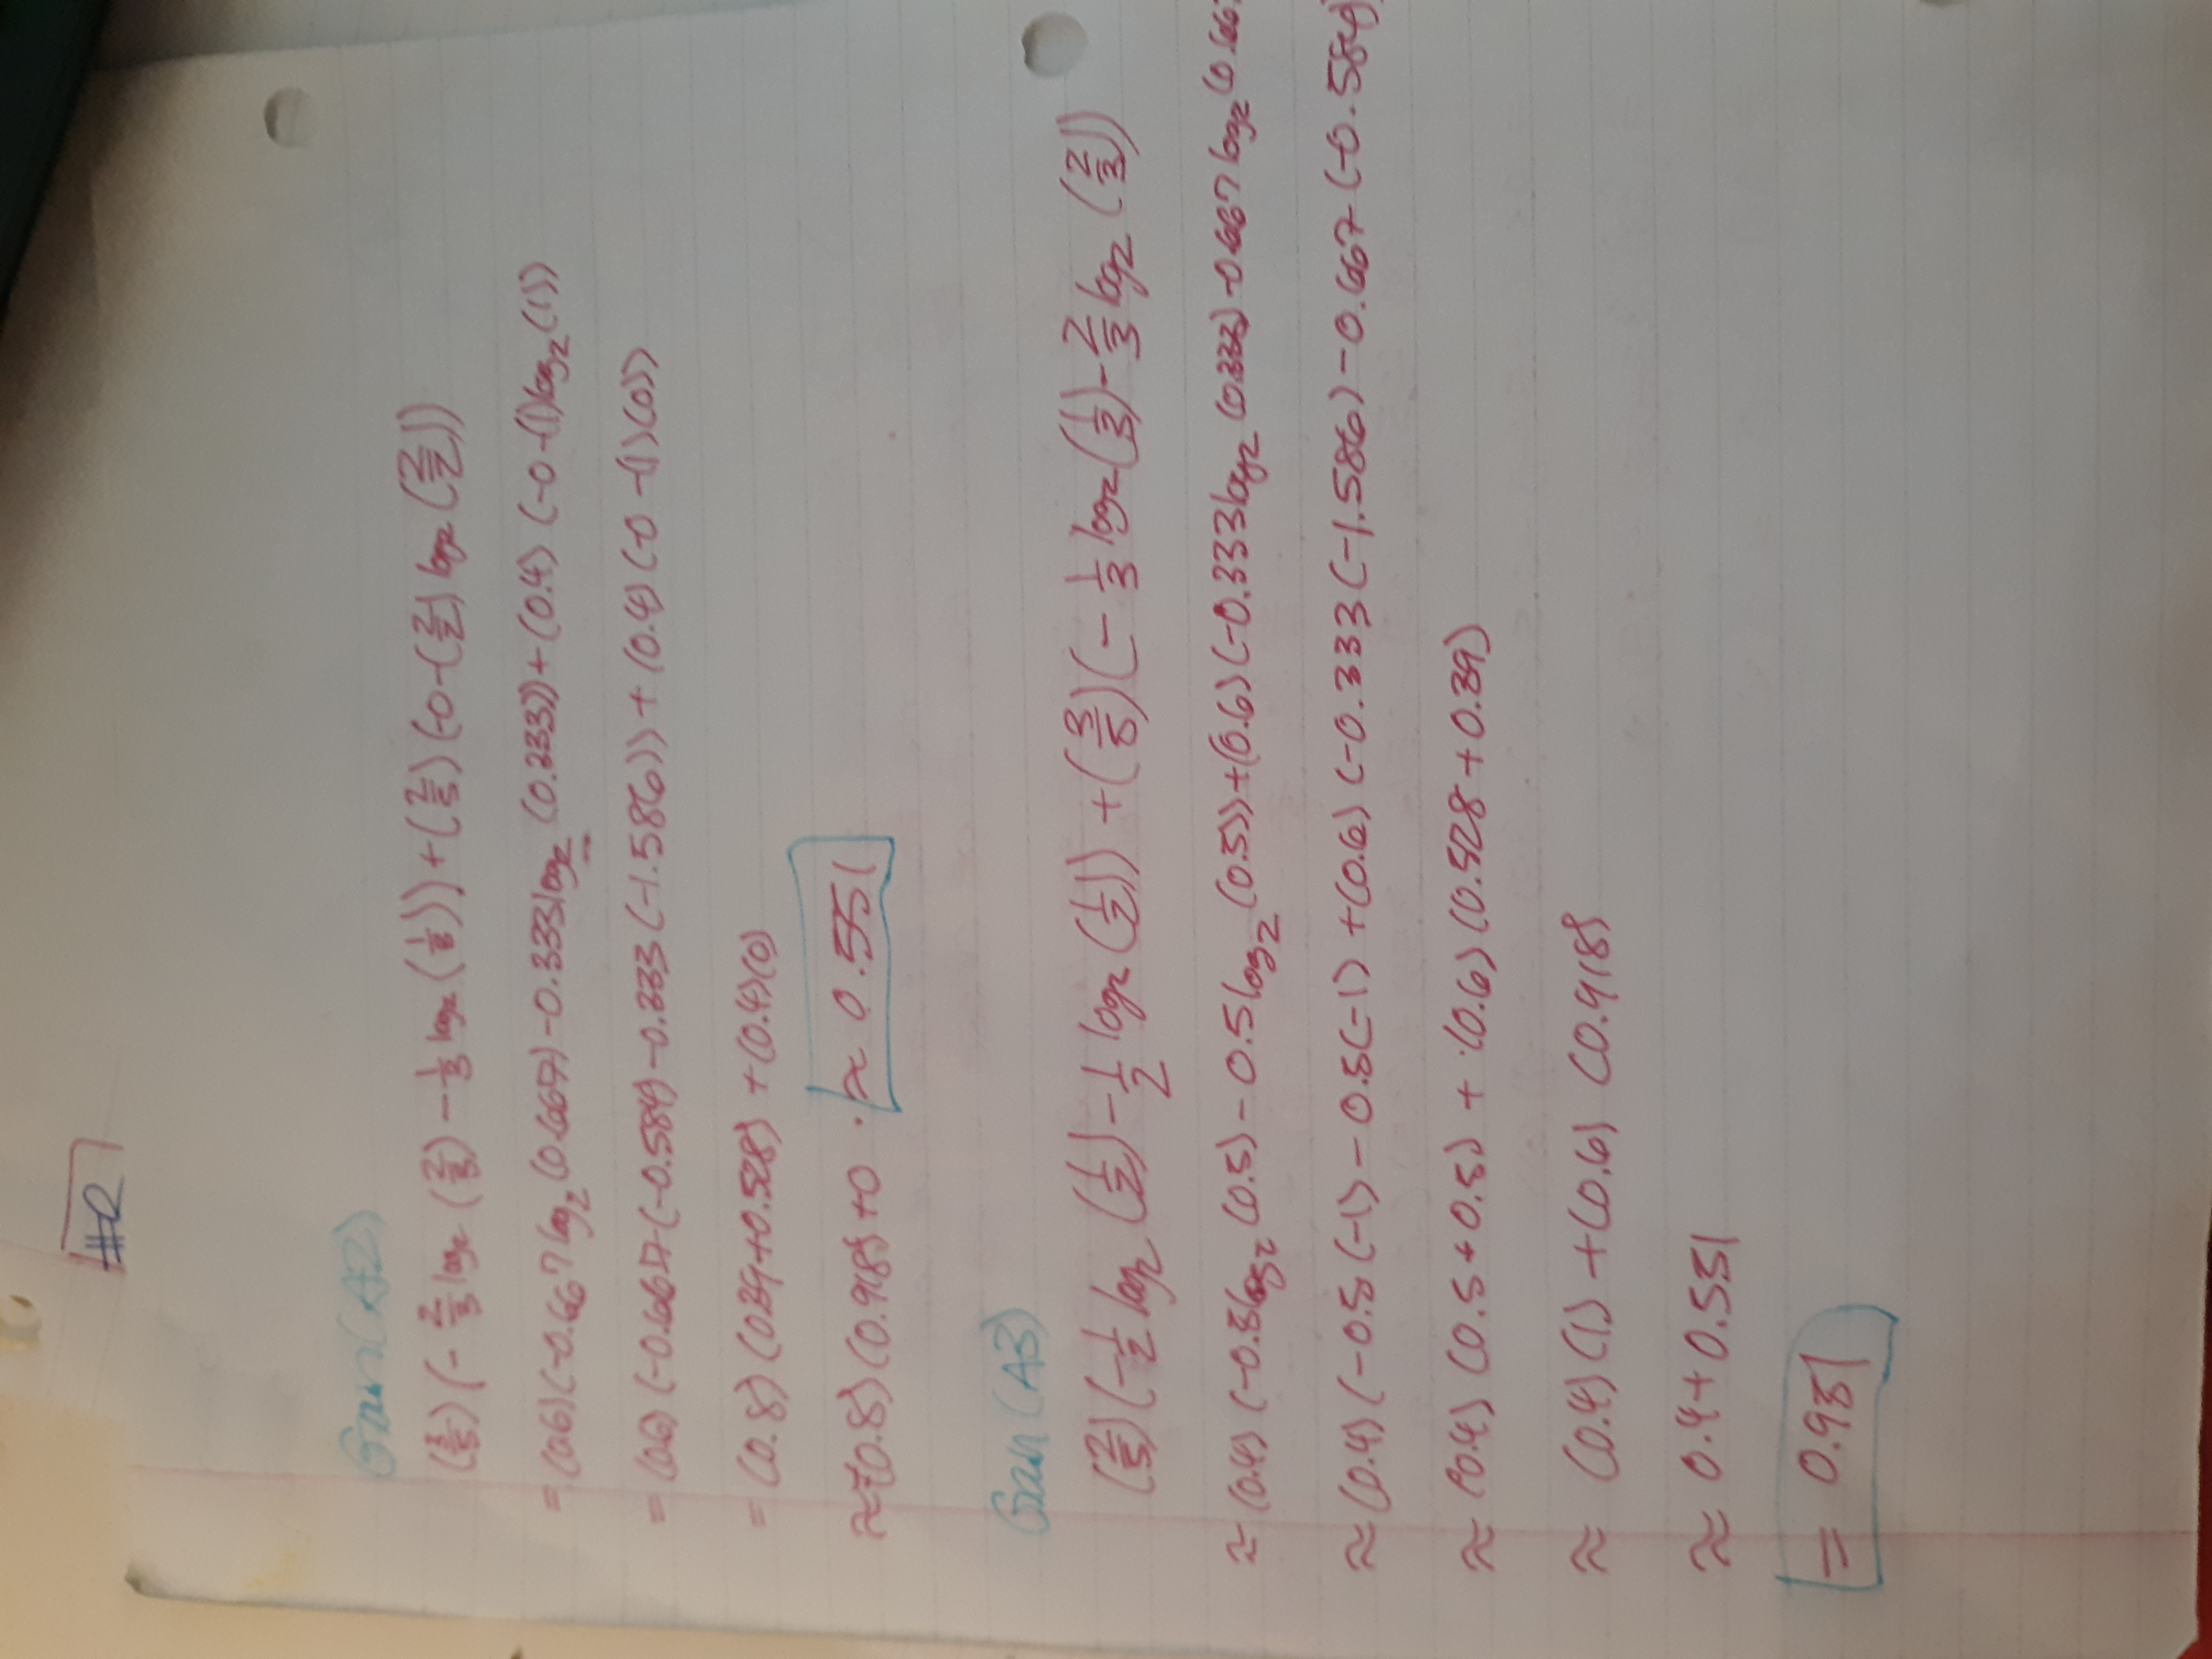 #2
Gain(A2)
(3/5) (- 2/3 log2 (2/3) - 1/3 log2 (1/3)) + (2/5) (-0 - (2/2) log2 (2/2))
= (0.6) (-0.667 log2 (0.667) - 0.333 log2 (0.333)) + (0.4) (-0 -(1) log2 (1))
= (0.6) (-0.667 (-0.584) - 0.333 (-1.586)) + (0.4) (-0 -(1)(0))
= (0.8) (0.39+0.528) + (0.4)(0)
≈ (0.8) (0.918) + 0 ≈ 0.551
Gain(A3)
(2/5) (- 1/2 log2 (1/2) - 1/2 log2 (1/2)) + (3/5) (- 1/3 log2 (1/3) - 2/3 log2 (2/3))
≈ (0.4) (-0.5 log2 (0.5) - 0.5 log2 (0.5)) + (0.6) (-0.333 log2 (0.333) - 0.667 log2 (0.667
≈ (0.4) (-0.5 (-1) - 0.5 (-1) + (0.6) (-0.333 (-1.586) - 0.667 (-0.584)
≈ (0.4) (0.5 + 0.5) + (0.6) (0.528 + 0.39)
≈ (0.4) (1) + (0.6) (0.918)
≈ 0.4 + 0.551
= 0.951